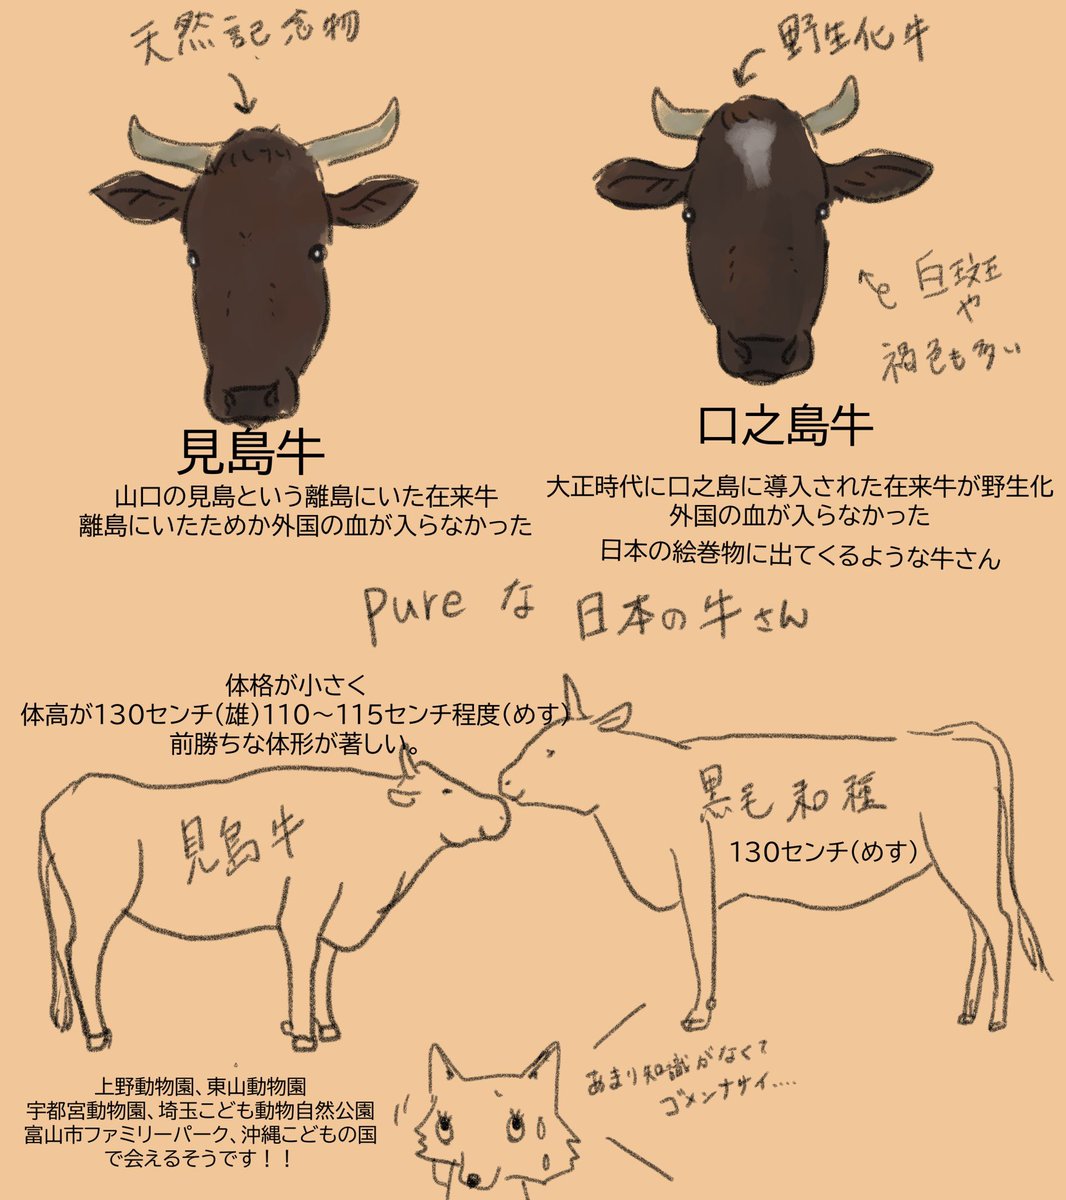 天然記念物
野生化牛
白斑
や
褐色も多い
見島牛
山口の見島という離島にいた在来牛
離島にいたためか外国の血が入らなかった
口之島牛
大正時代に口之島に導入された在来牛が野生化
外国の血が入らなかった
日本の絵巻物に出てくるような牛さん
pureな日本の牛さん
体格が小さく
体高が130センチ(雄)110〜115センチ程度(めす)
前勝ちな体形が著しい。
見島牛
黒毛和種
130センチ(めす)
上野動物園、東山動物園
宇都宮動物園、埼玉こども動物自然公園
富山市ファミリーパーク、沖縄こどもの国
で会えるそうです！！
あまり知識がなくて
ゴメンナサイ....